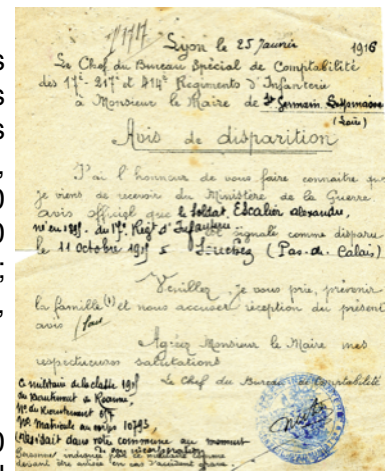 1717
Lyon le 25 Janvier 1916
Le Chef du Bureau Spécial de Comptabilité
des 17e - 217e et 414e Régiments d'Infanterie
à Monsieur le Maire de St Germain
(Loire)
Avis de disparition
J'ai l'honneur de vous faire connaître que
je viens de recevoir du Ministère de la Guerre
avis officiel que le soldat, Escalier
du 17e Régt d'Infanterie signalé comme disparu
le 11 Octobre (Pas-de-Calais)
Veuillez je vous prie, prévenir
la famille (1) et nous accuser réception du présent
avis
Agréez Monsieur le Maire mes
respectueuses salutations
Le Chef du Bureau de Comptabilité
Ce militaire de la classe
du recrutement de Roanne
No du Recrutement
No matricule au corps 10793
résidait dans votre commune au moment
de son incorporation
Personne indiquée par ce militaire comme
devant être avisée en cas d'accident grave